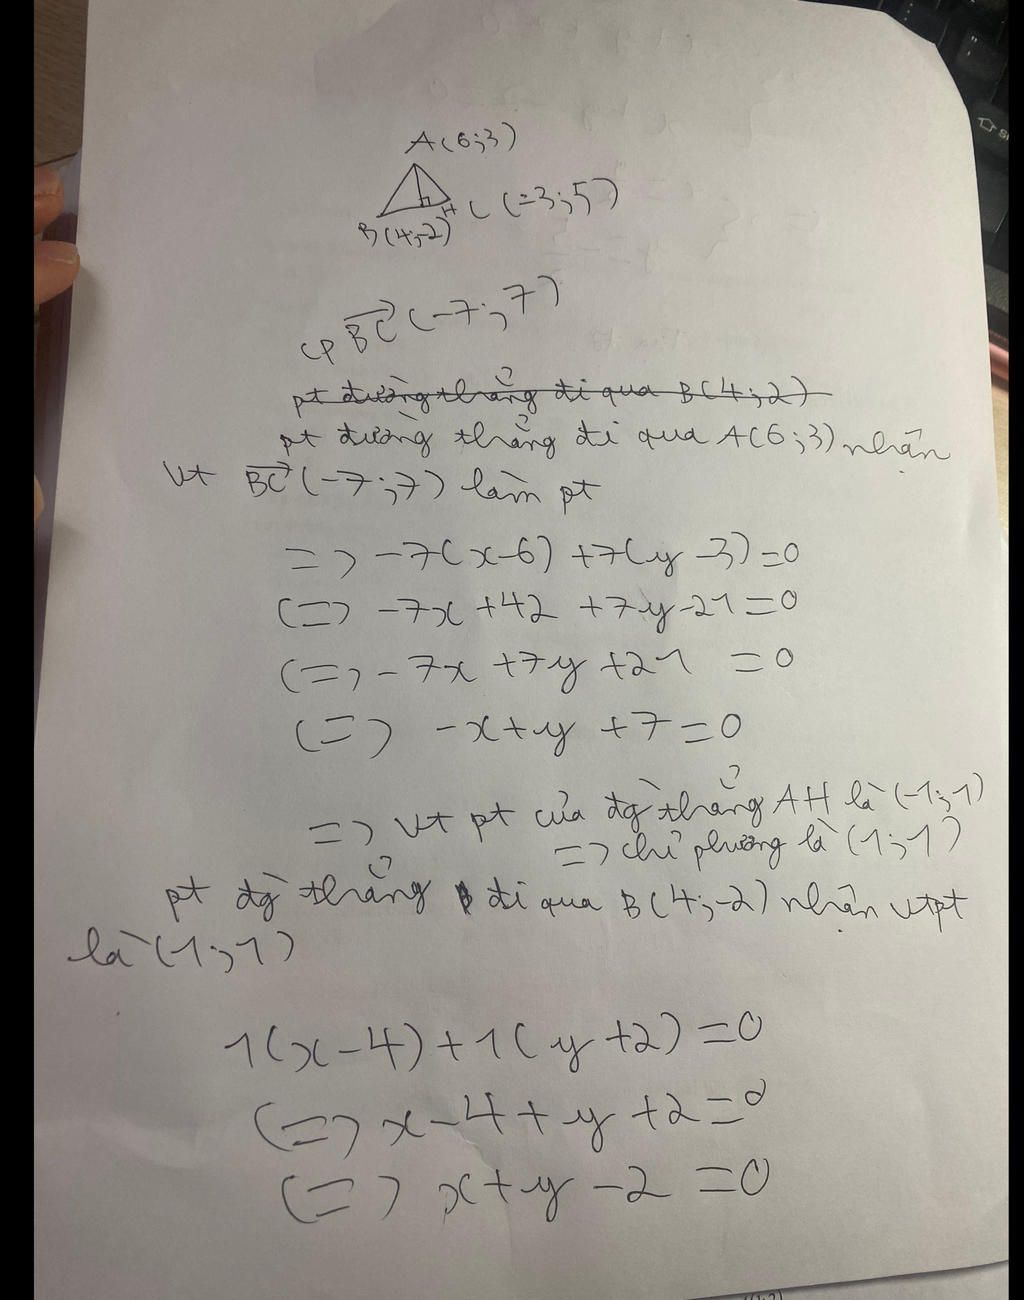 A(6;3)
C (-3;5)
H
B(4;-2)
CP BC (-7;7)
pt đường thẳng đi qua B(4;2)
pt đường thẳng đi qua A(6;3) nhận
vt BC (-7;7) làm pt
=> -7(x-6) +7(y-3)=0
<=> -7x +42 +7y-21=0
<=> -7x +7y +21 =0
<=> -x+y +7=0
=> vt pt của đg thẳng AH là (-1;1)
=> chỉ phương là (1;1)
pt đg thẳng đi qua B(4;-2) nhận vtpt
là (1;1)
1(x-4)+1(y+2)=0
<=> x-4+y+2=0
<=> x+y-2=0